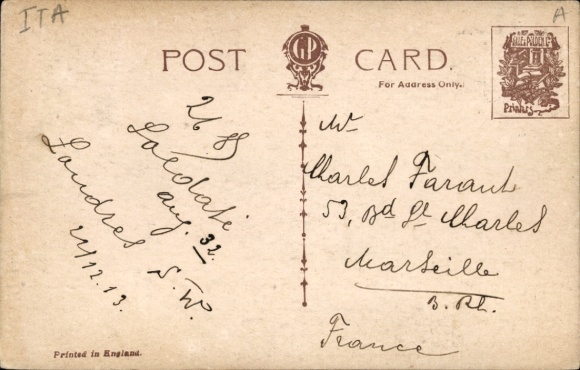 ITA
A
POST CARD.
GP
For Address Only.
Printers
26
aug. 32.
Londres S.W.
22/12.13.
Mr
Charles Farant
53, Bd St Charles
Marseille
B. Rh.
France
Printed in England.